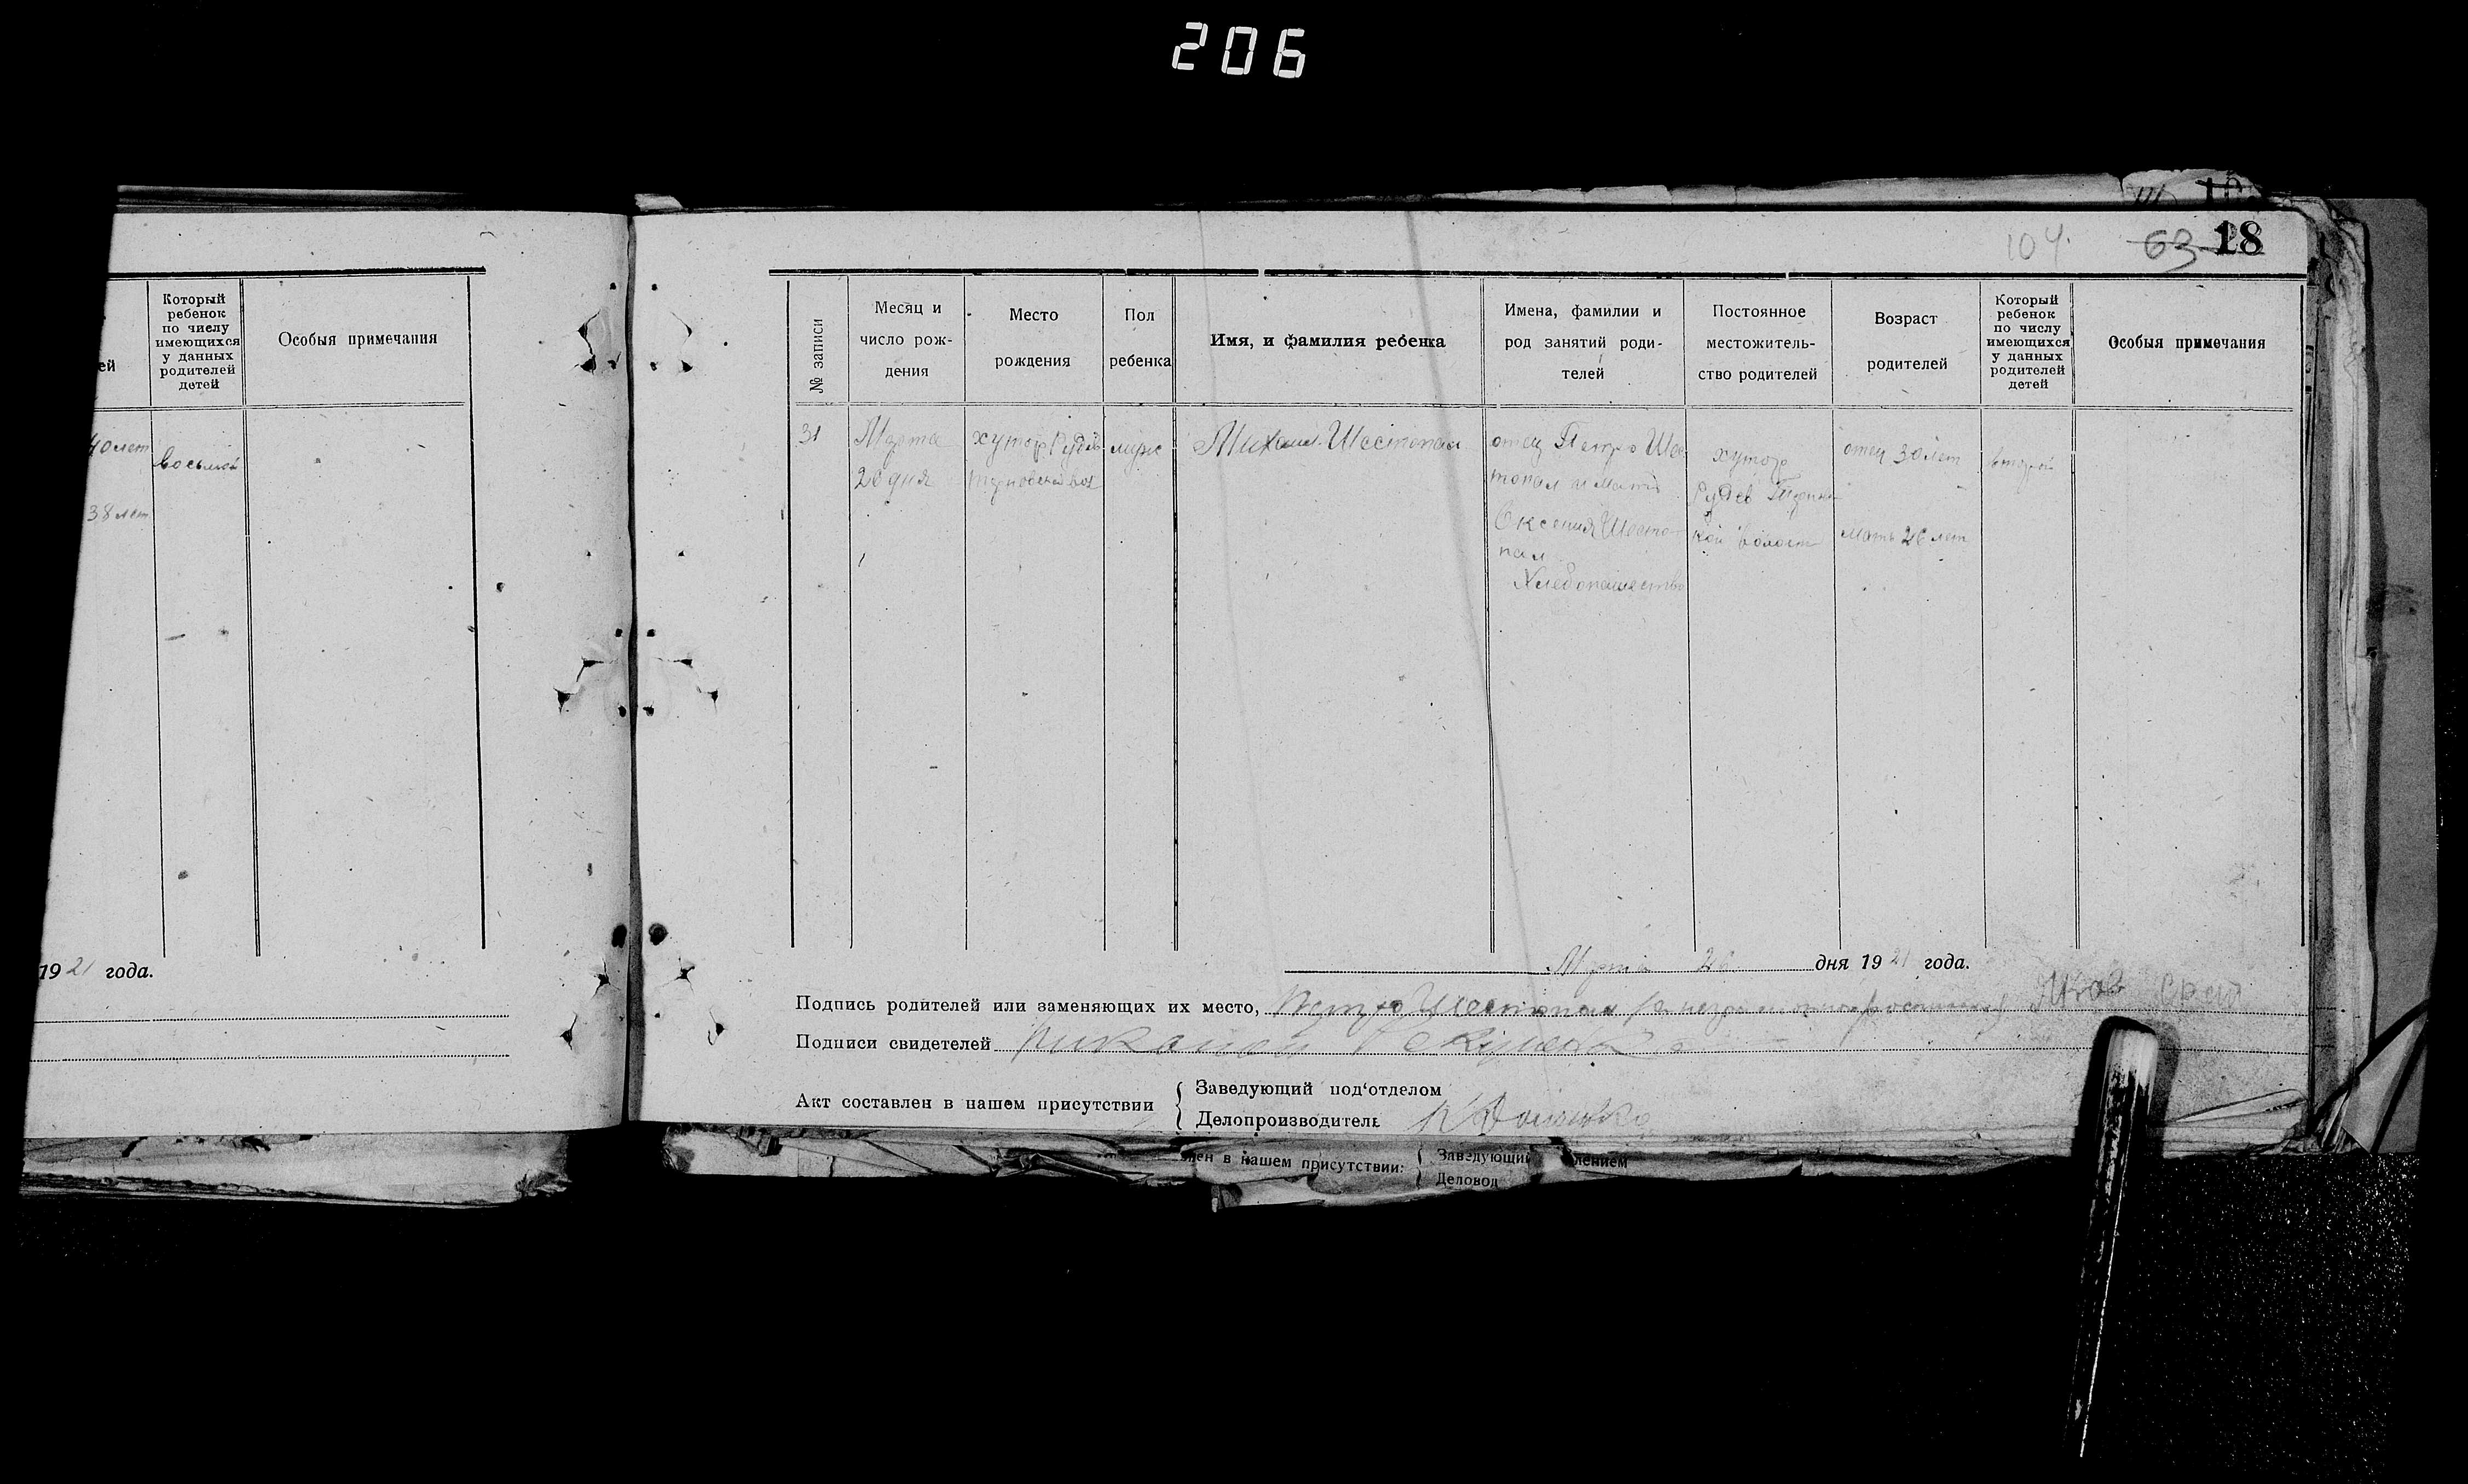 206
104
63
18
ей
Который
ребенок
по числу
имеющихся
у данных
родителей
детей
Особыя примечания
40 лет
восьмой
38 лет
1921 года.
№ записи
Месяц и
число рож-
дения
Место
рождения
Пол
ребенка
Имя, и фамилия ребенка
Имена, фамилии и
род занятий роди-
телей
Постоянное
местожитель-
ство родителей
Возраст
родителей
Который
ребенок
по числу
имеющихся
у данных
родителей
детей
Особыя примечания
31
Марта
26 дня
хутор Рудев
муж
Михаил Шестопал
отец Петро Шес
топал и мать
Оксения Шесто-
пал
Хлебопашество
хутор
Рудев
кой волости
отец 30 лет
мать 26 лет
второй
Марта 26 дня 1921 года.
Подпись родителей или заменяющих их место, Петро Шестопал
Подписи свидетелей
Акт составлен в нашем присутствии
Заведующий под'отделом
Делопроизводитель
лен в нашем присутствии:
Заведующий
лением
Деловод